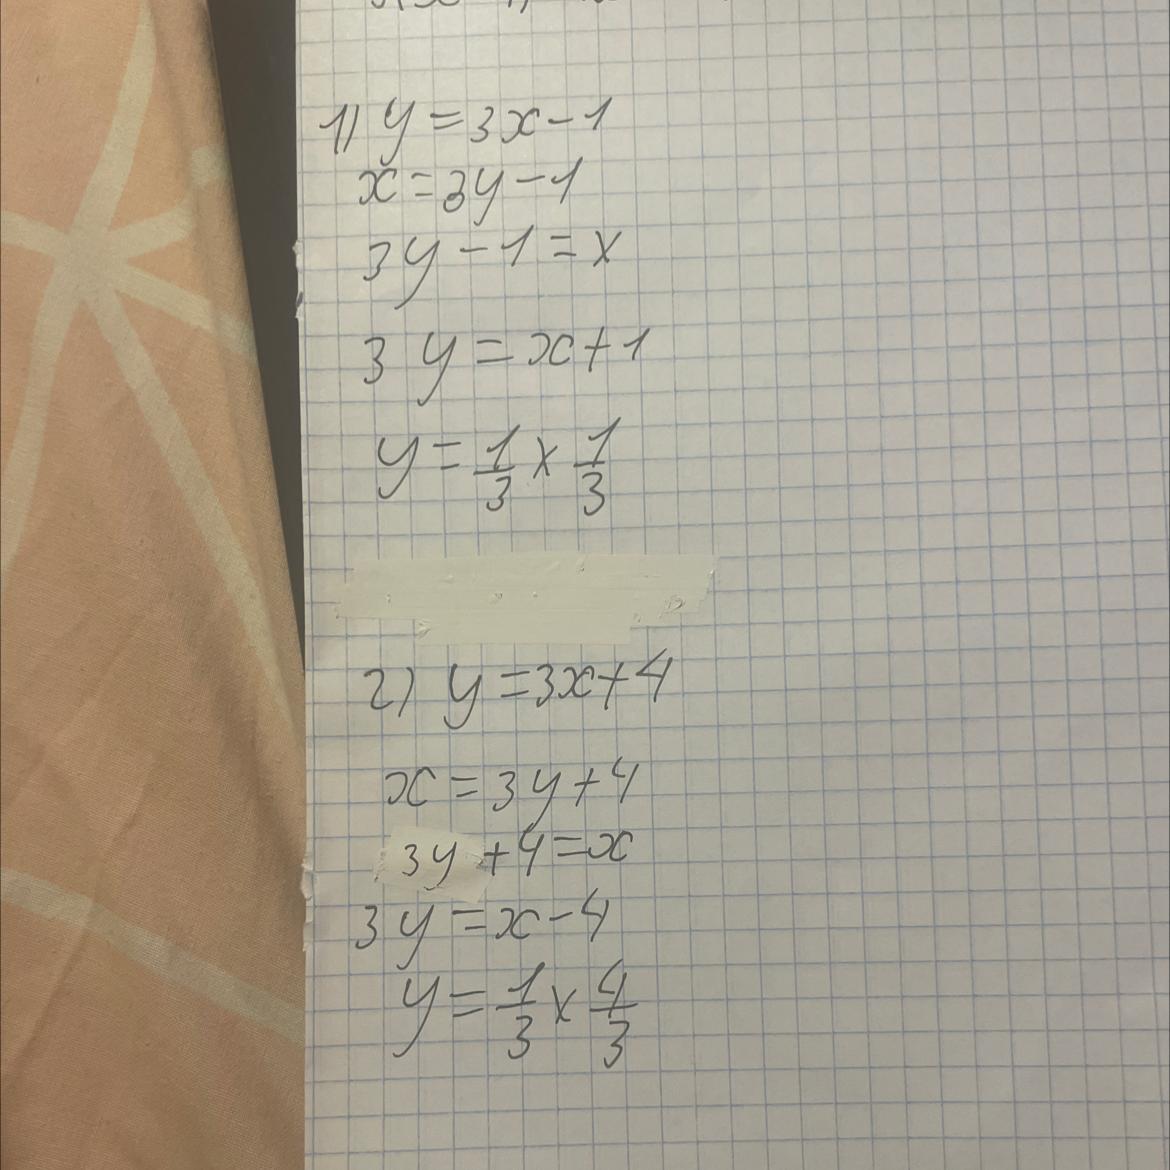 1) y = 3x - 1
x = 3y - 1
3y - 1 = x
3y = x + 1
y = 1/3 x 1/3
2) y = 3x + 4
x = 3y + 4
3y + 4 = x
3y = x - 4
y = 1/3 x 4/3